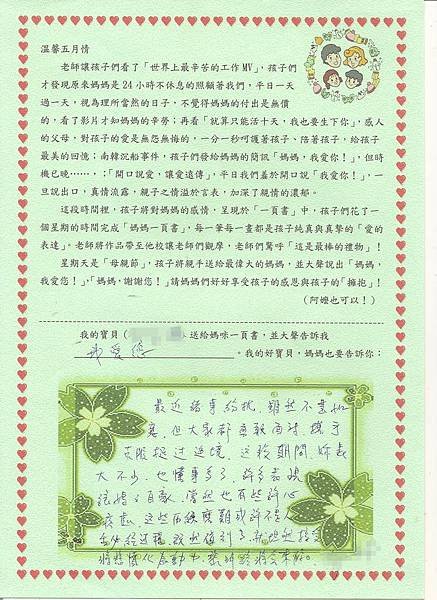 溫馨五月情
老師讓孩子們看了「世界上最辛苦的工作MV」，孩子們
才發現原來媽媽是24小時不休息的照顧著我們，平日一天
過一天，視為理所當然的日子，不覺得媽媽的付出是無價
的，看了影片才知媽媽的辛勞；再看「就算只能活十天，我也要生下你」，感人
的父母，對孩子的愛是無怨無悔的，一分一秒呵護著孩子、陪著孩子，給孩子
最美的回憶；南韓沉船事件，孩子們發給媽媽的簡訊「媽媽，我愛你！」，但時
機已晚……；「開口說愛，讓愛遠傳」，平日我們羞於開口說「我愛你！」，一
旦說出口，真情流露，親子之情溢於言表，加深了親情的濃郁。
這段時間裡，孩子將對媽媽的感情，呈現於「一頁書」中，孩子們花了一
個星期的時間完成「媽媽一頁書」，每一筆每一畫都是孩子純真與真摯的「愛的
表達」，老師將作品帶至他校讓老師們觀摩，老師們驚呼「這是最棒的禮物」！
星期天是「母親節」，孩子將親手送給最偉大的媽媽，並大聲說出「媽媽，
我愛您！」，「媽媽，謝謝您！」請媽媽們好好享受孩子的感恩與孩子的「擁抱」！
（阿嬤也可以！）
我的寶貝（）送給媽咪一頁書，並大聲告訴我
我愛您。我的好寶貝，媽媽也要告訴你：
最近諸事紛擾，雖然不盡如
意，但大家都
走過逆境，這段期間，妳長
大不少，也懂事多了，許多表現
當然也有些許
這些
過程
將悲憤化為動力